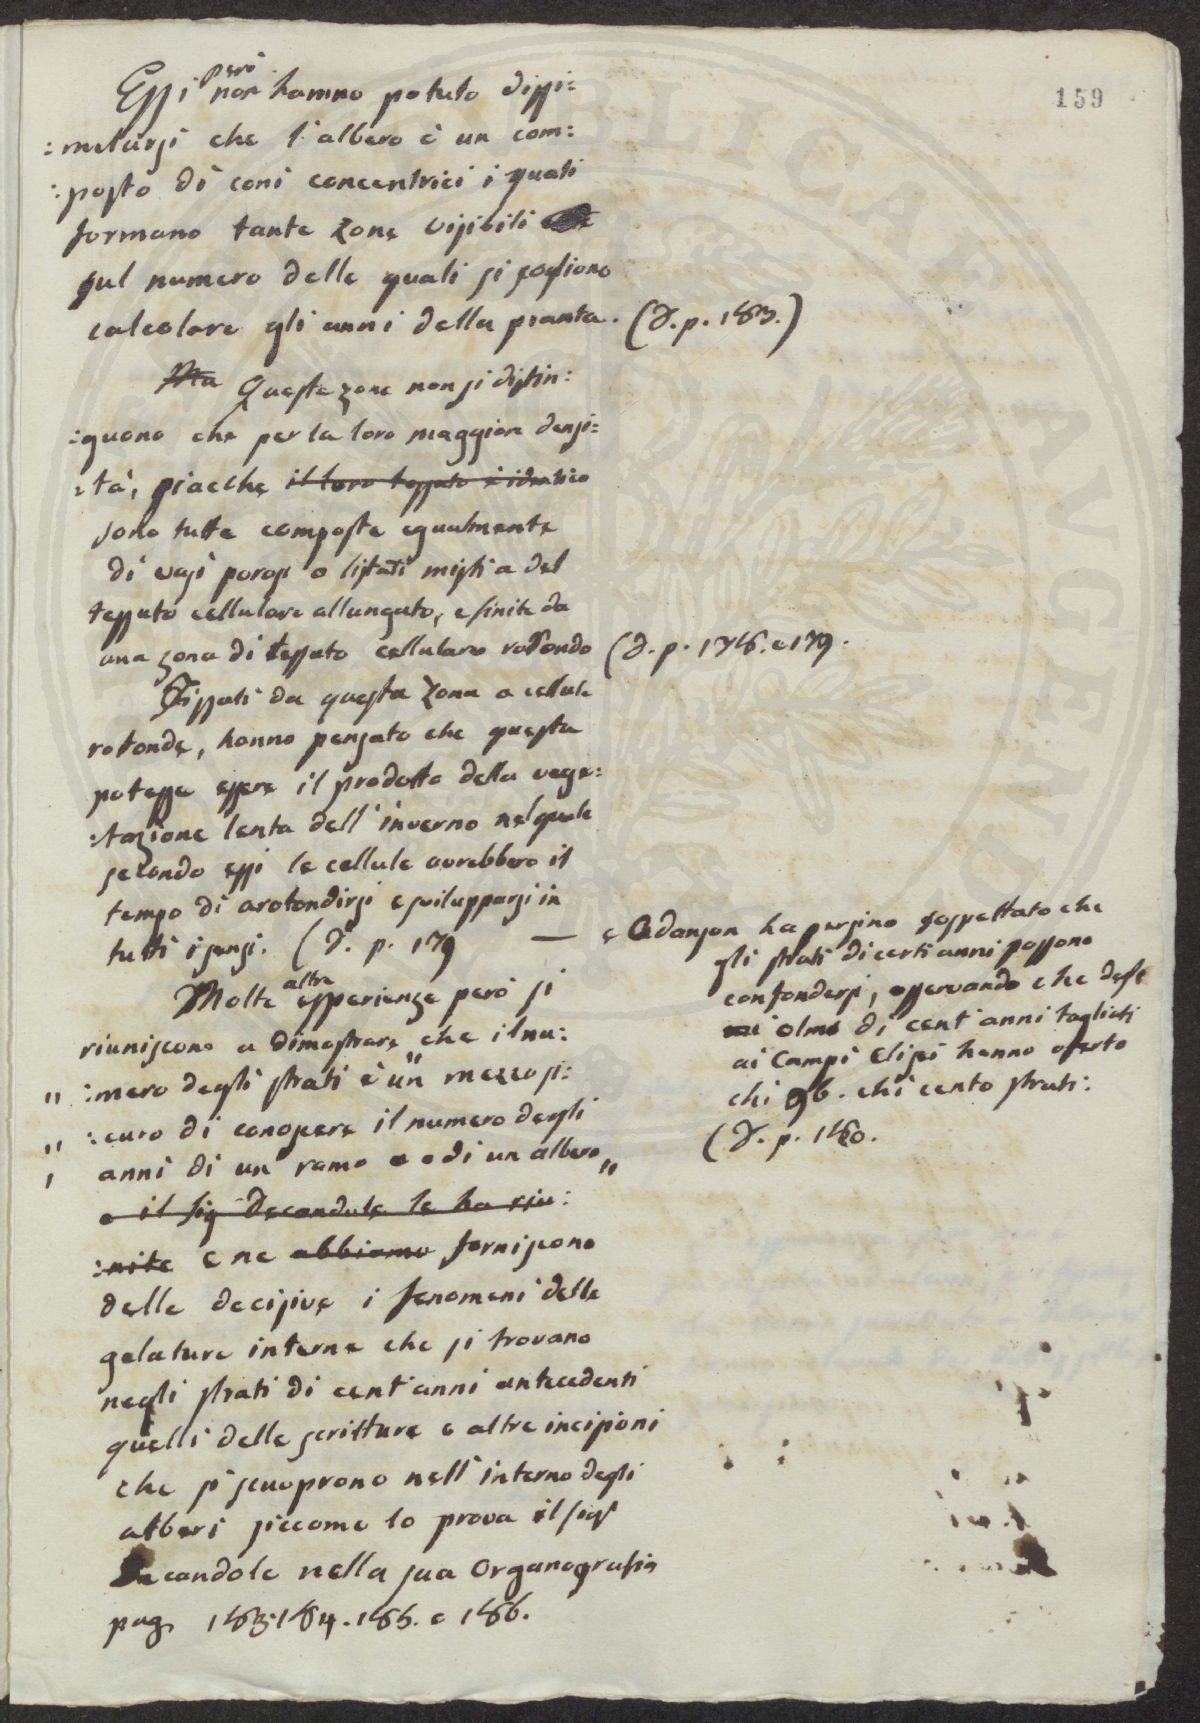 159
Essi però non hanno potuto dissi:
:mularsi che l'albero è un com:
:posto di coni concentrici i quali
formano tante zone visibili
sul numero delle quali si sogliono
calcolare gli anni della pianta. (V. p. 183.)
Ma Queste zone non si distin:
:guono che per la loro maggiore densi:
:tà, giacche il loro tessuto è identico
sono tutte composte egualmente
di vasi porosi o listati misti a del
tessuto cellulare allungato, e finite da
una zona di tessuto cellulare rotondo (V. p. 178. e 179.
Fissati da questa zona a cellule
rotonde, hanno pensato che questa
potesse essere il prodotto della vege:
:tazione lenta dell'inverno nel quale
secondo essi le cellule avrebbero il
tempo di arotondirsi e svilupparsi in
tutti i sensi. (V. p. 179 —
e Adanson ha persino sospettato che
gli strati di certi anni possono
confondersi, osservando che degl
olmi di cent'anni tagliati
ai Campi Elisi hanno oferto
chi 96. chi cento strati:
(V. p. 180.
Molte altre esperienze però si
riuniscono a dimostrare che il nu:
" :mero degli strati è "un mezzo si:
" :curo di conoscere il numero degli
" anni di un ramo o di un albero "
e il sig Decandole le ha riu:
:nite e ne abbiamo forniscono
delle decisive i fenomeni delle
gelature interne che si trovano
negli strati di cent'anni antecedenti
quelli delle scritture e altre incisioni
che si scuoprono nell'interno degli
alberi siccome lo prova il sigr
Decandole nella sua Organografia
pag. 183. 184. 185. e 186.